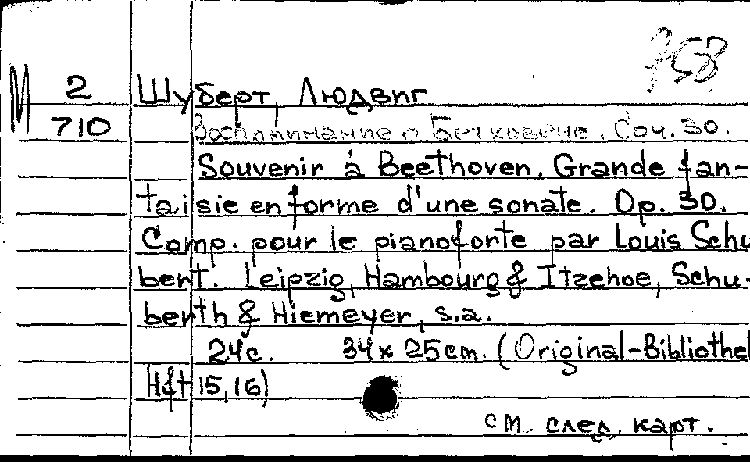 758
М 2 Шуберт, Людвиг
710 Воспоминание о Бетховене. Соч. 30.
Souvenir à Beethoven. Grande fan-
taisie en forme d'une sonate. Op. 30.
Comp. pour le pianoforte par Louis Schu
bert. Leipzig, Hambourg & Itzehoe, Schu-
berth & Niemeyer, s.a.
24 с. 34 x 25 cm. (Original-Bibliothek
Hft 15, 16)
см. след. карт.